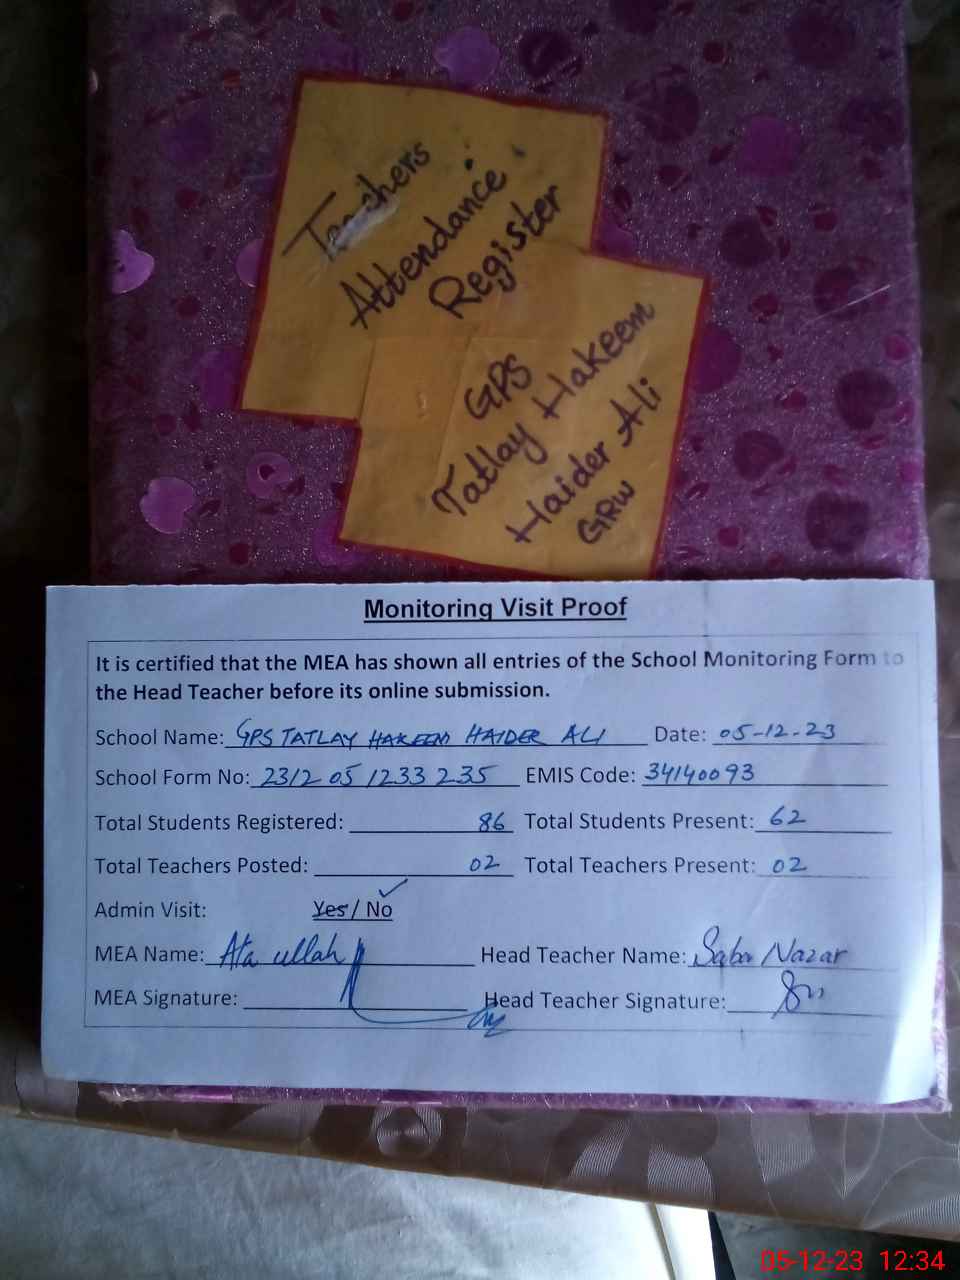 Teachers
Attendance
Register
GPS
Tatlay Hakeem
Haider Ali
GRW
Monitoring Visit Proof
It is certified that the MEA has shown all entries of the School Monitoring Form to
the Head Teacher before its online submission.
School Name: GPS TATLAY HAKEEM HAIDER ALI Date: 05-12-23
School Form No: 2312 05 1233 235 EMIS Code: 34140093
Total Students Registered: 86 Total Students Present: 62
Total Teachers Posted: 02 Total Teachers Present: 02
Admin Visit: Yes / No
MEA Name: Ata ullah Head Teacher Name: Saba Nazar
MEA Signature: Head Teacher Signature:
05-12-23 12:34